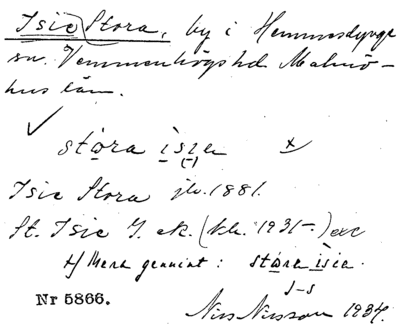 Isie Stora, by i Hemmesdynge
sn. Vemmenhögs hd. Malmö-
hus län.
✓
stora isie x
(-)
Isie Stora jb. 1881.
St. Isie J. ek. (bl. 1931-.)
x) Mera genuint: stora isie
J-s
Nr 5866.
Nils Nilsson 1937.